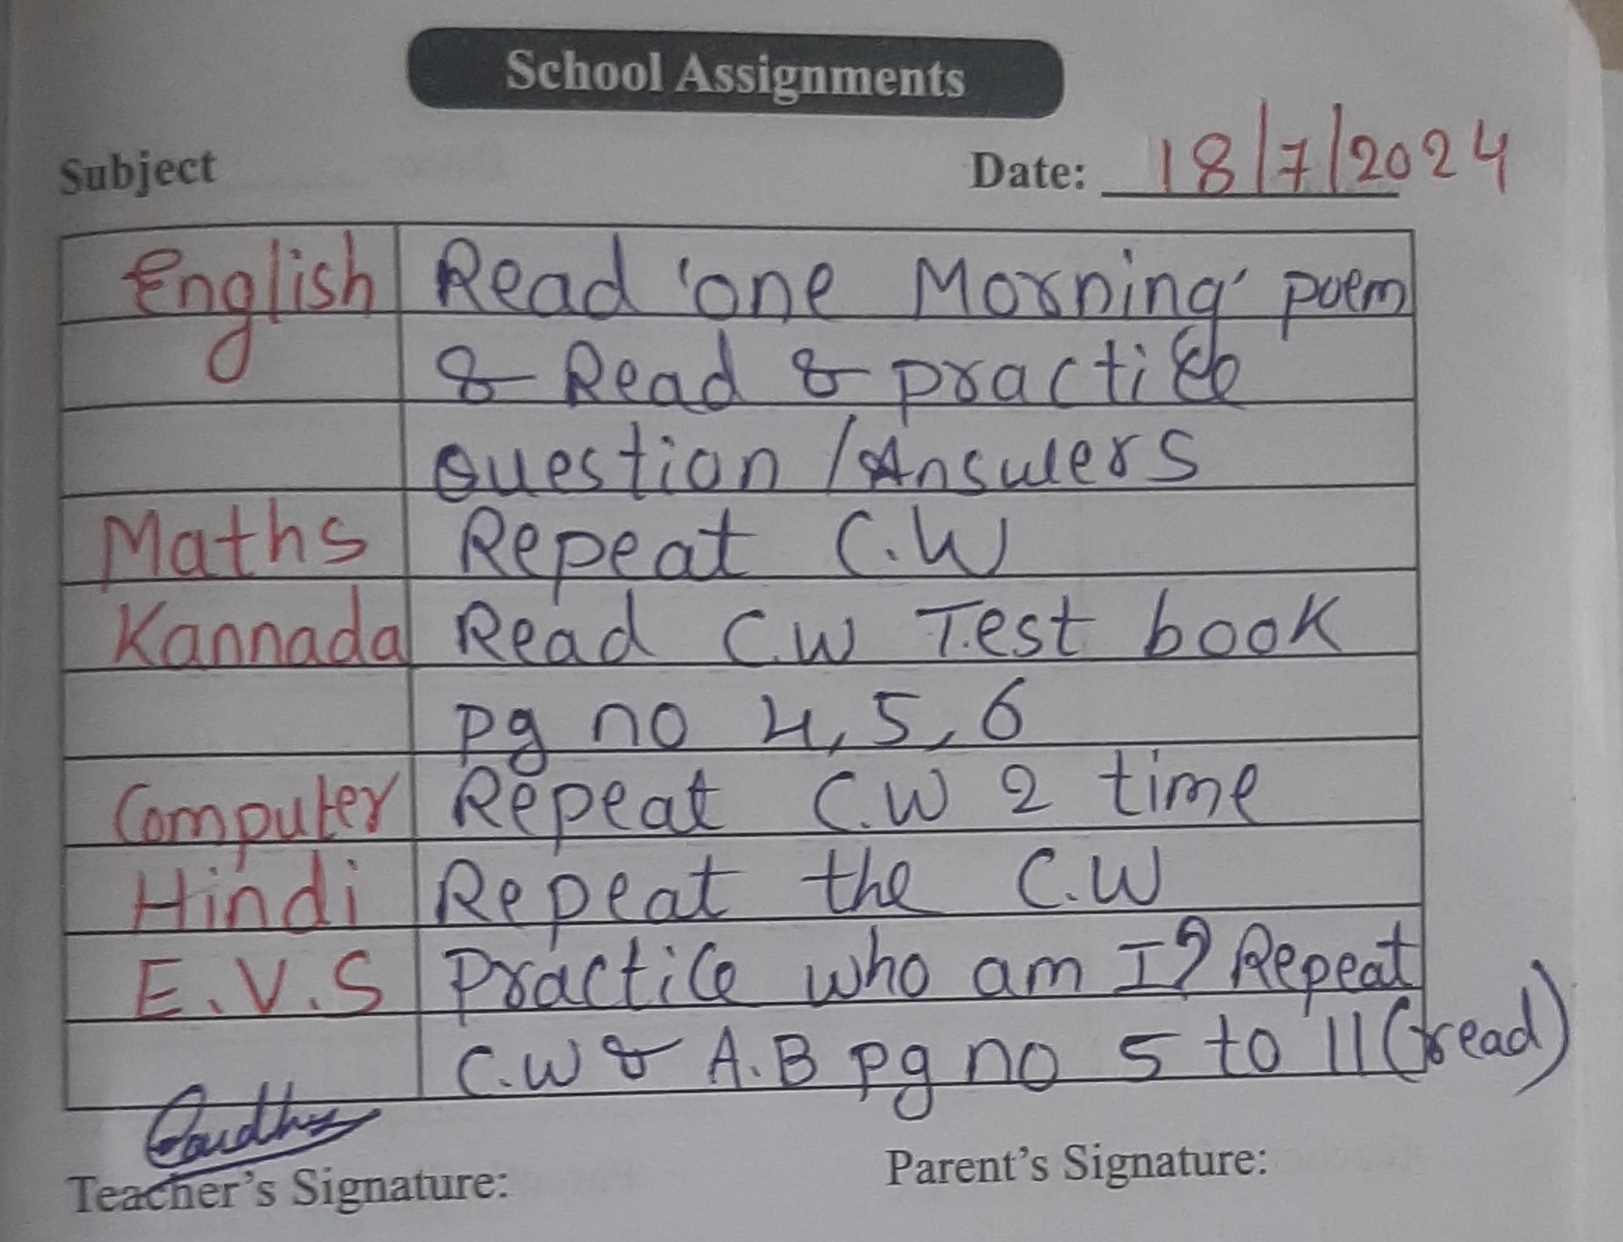 School Assignments
Subject
Date: 18/7/2024
English Read 'one Morning' poem
& Read & practice
Question / Answers
Maths Repeat C.W
Kannada Read C.W Test book
pg no 4, 5, 6
Computer Repeat C.W 2 time
Hindi Repeat the C.W
E.V.S Practice who am I? Repeat
C.W & A.B pg no 5 to 11 (read)
Teacher's Signature:
Parent's Signature: